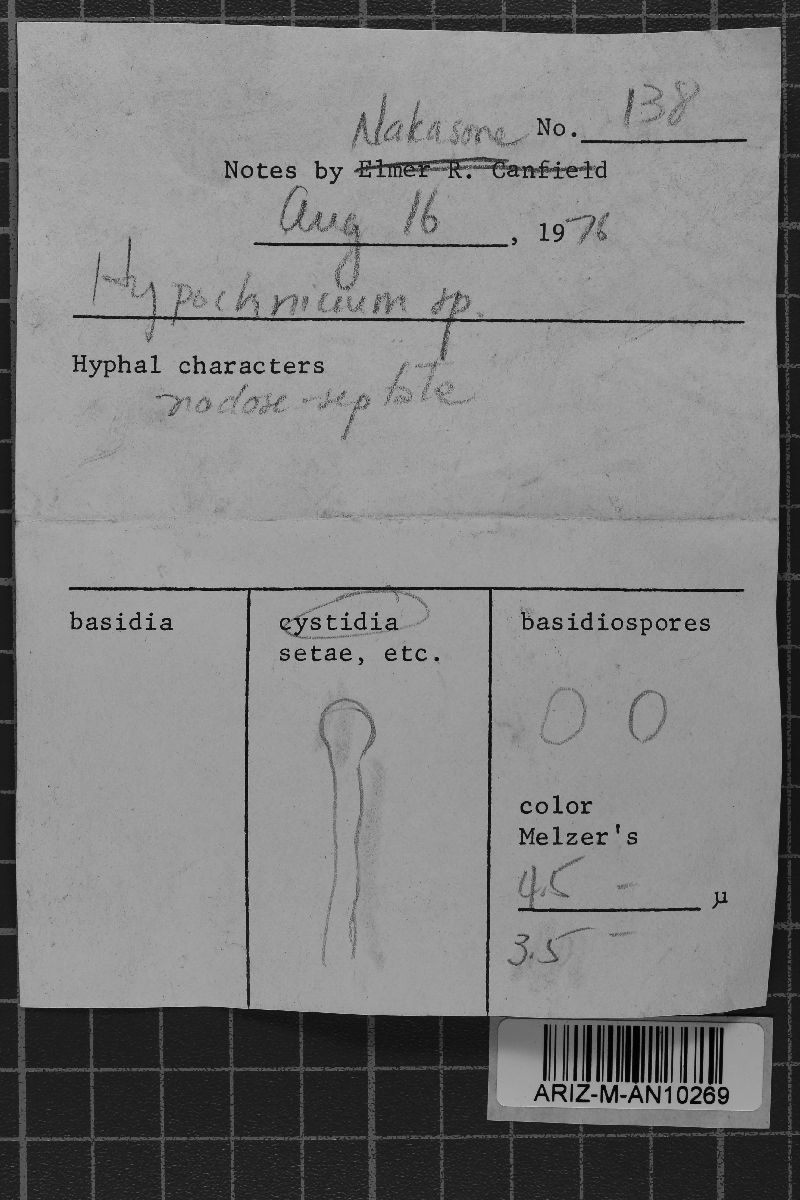 Nakasone No. 138
Notes by Elmer R. Canfield
Aug 16, 1976
Hypochnicium sp.
Hyphal characters
nodose-septate
basidia
cystidia
setae, etc.
basidiospores
color
Melzer's
4.5 - µ
3.5 -
ARIZ-M-AN10269